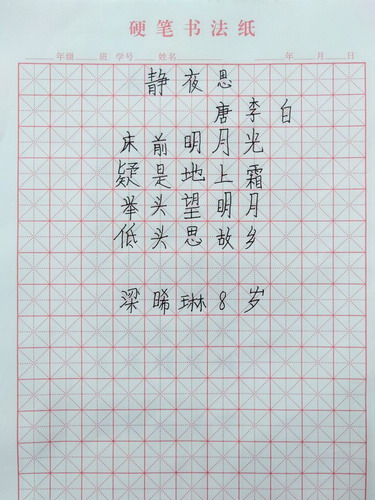 硬笔书法纸
年级 班 学号 姓名 年 月 日
静夜思
唐李白
床前明月光
疑是地上霜
举头望明月
低头思故乡
梁晞琳8岁